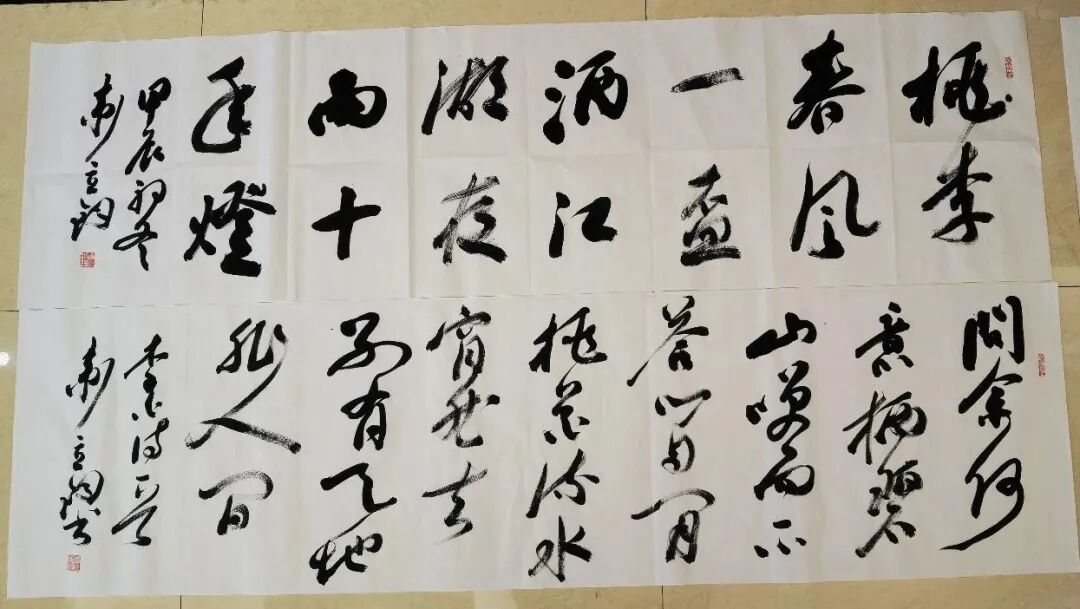 桃李
春風
一盃
酒江
湖夜
雨十
年燈
甲辰初冬
立
問余何
意栖碧
山笑而不
答心自閒
桃花流水
窅然去
别有天地
非人间
李白诗一首
立